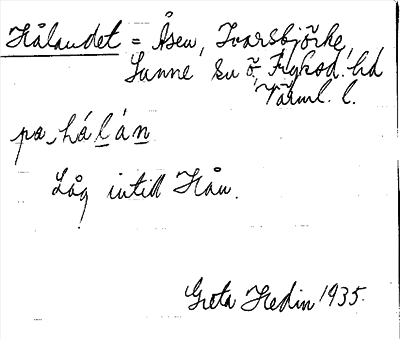 Hålandet = Åsen, Ivarsbjörke,
Sunne sn Ö, Fryksd. hd
Värml. l.
pa, hálán
Låg intill Hån.
Greta Hedin 1935.